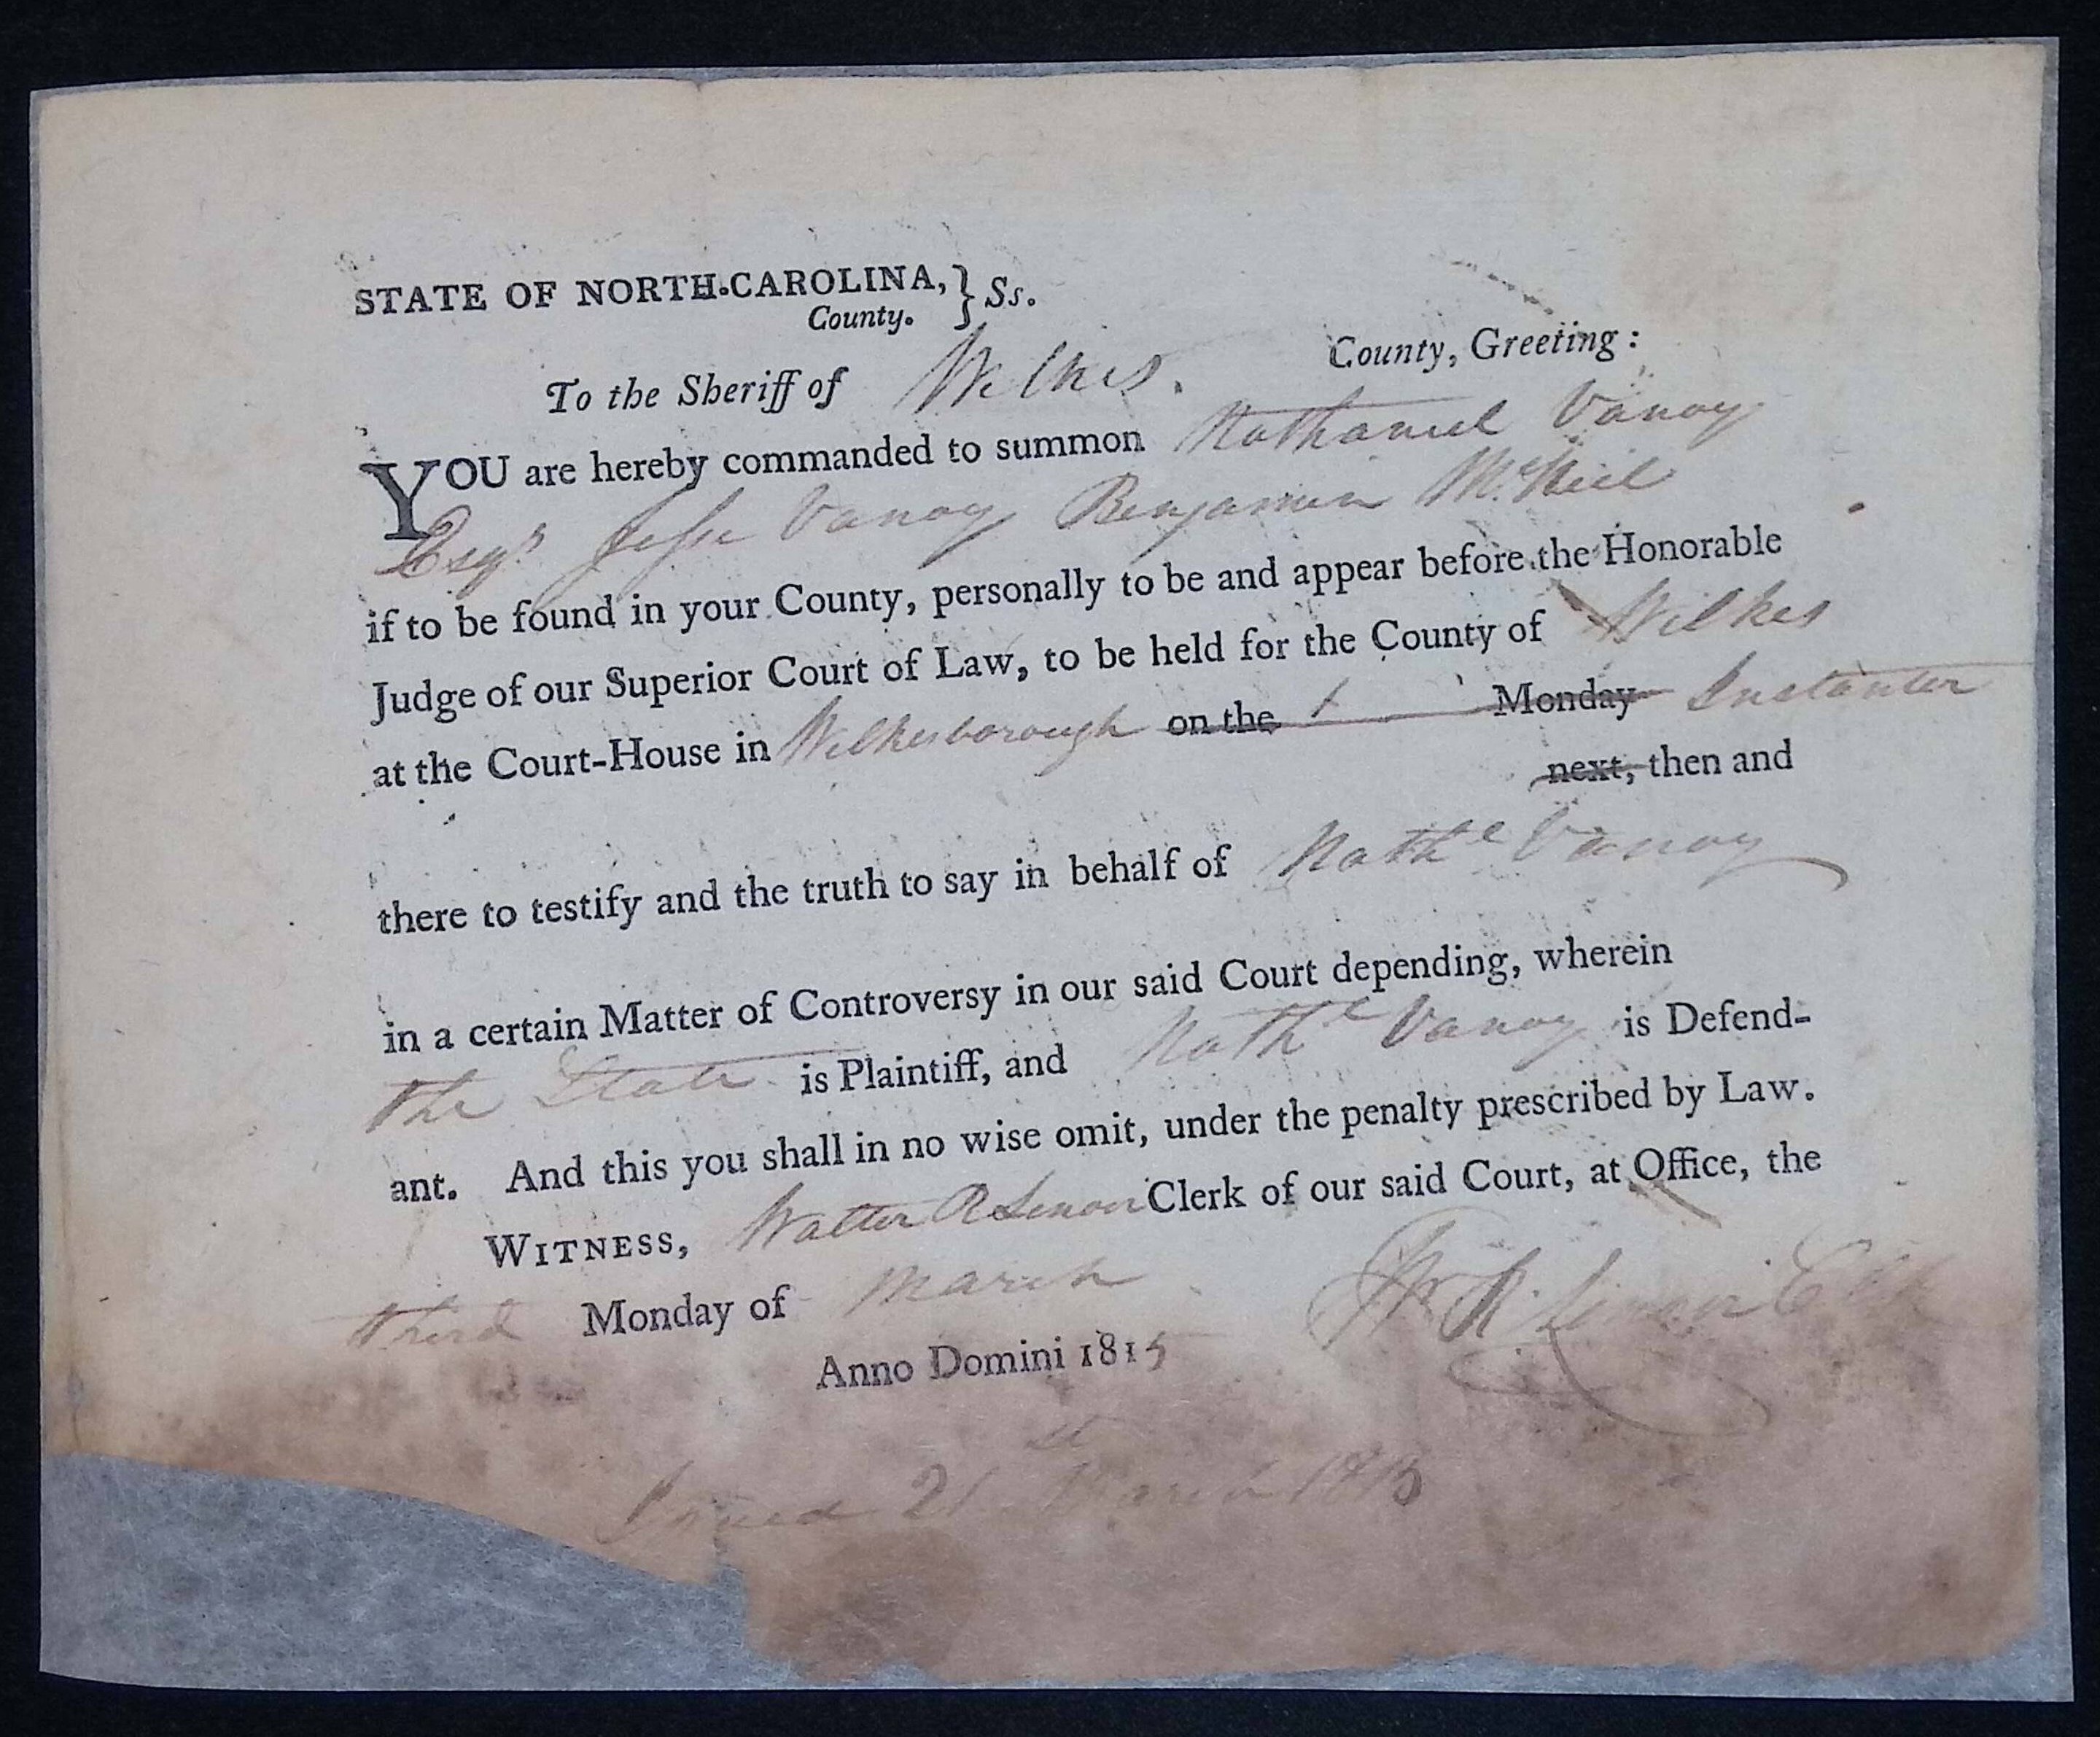 STATE OF NORTH-CAROLINA, } Ss.
County.
To the Sheriff of Wilkes. County, Greeting:
YOU are hereby commanded to summon Nathaniel Vanoy
Esqr. Jesse Vanoy Benjamin McNeil
if to be found in your County, personally to be and appear before the Honorable
Judge of our Superior Court of Law, to be held for the County of Wilkes
at the Court-House in Wilkesborough on the Monday Instanter
next, then and
there to testify and the truth to say in behalf of Nathl Vanoy
in a certain Matter of Controversy in our said Court depending, wherein
the State is Plaintiff, and Nathl Vanoy is Defend-
ant. And this you shall in no wise omit, under the penalty prescribed by Law.
WITNESS, Walter R Lenoir Clerk of our said Court, at Office, the
third Monday of March
Anno Domini 1815
W R Lenoir Clk
Issued 21st March 1815